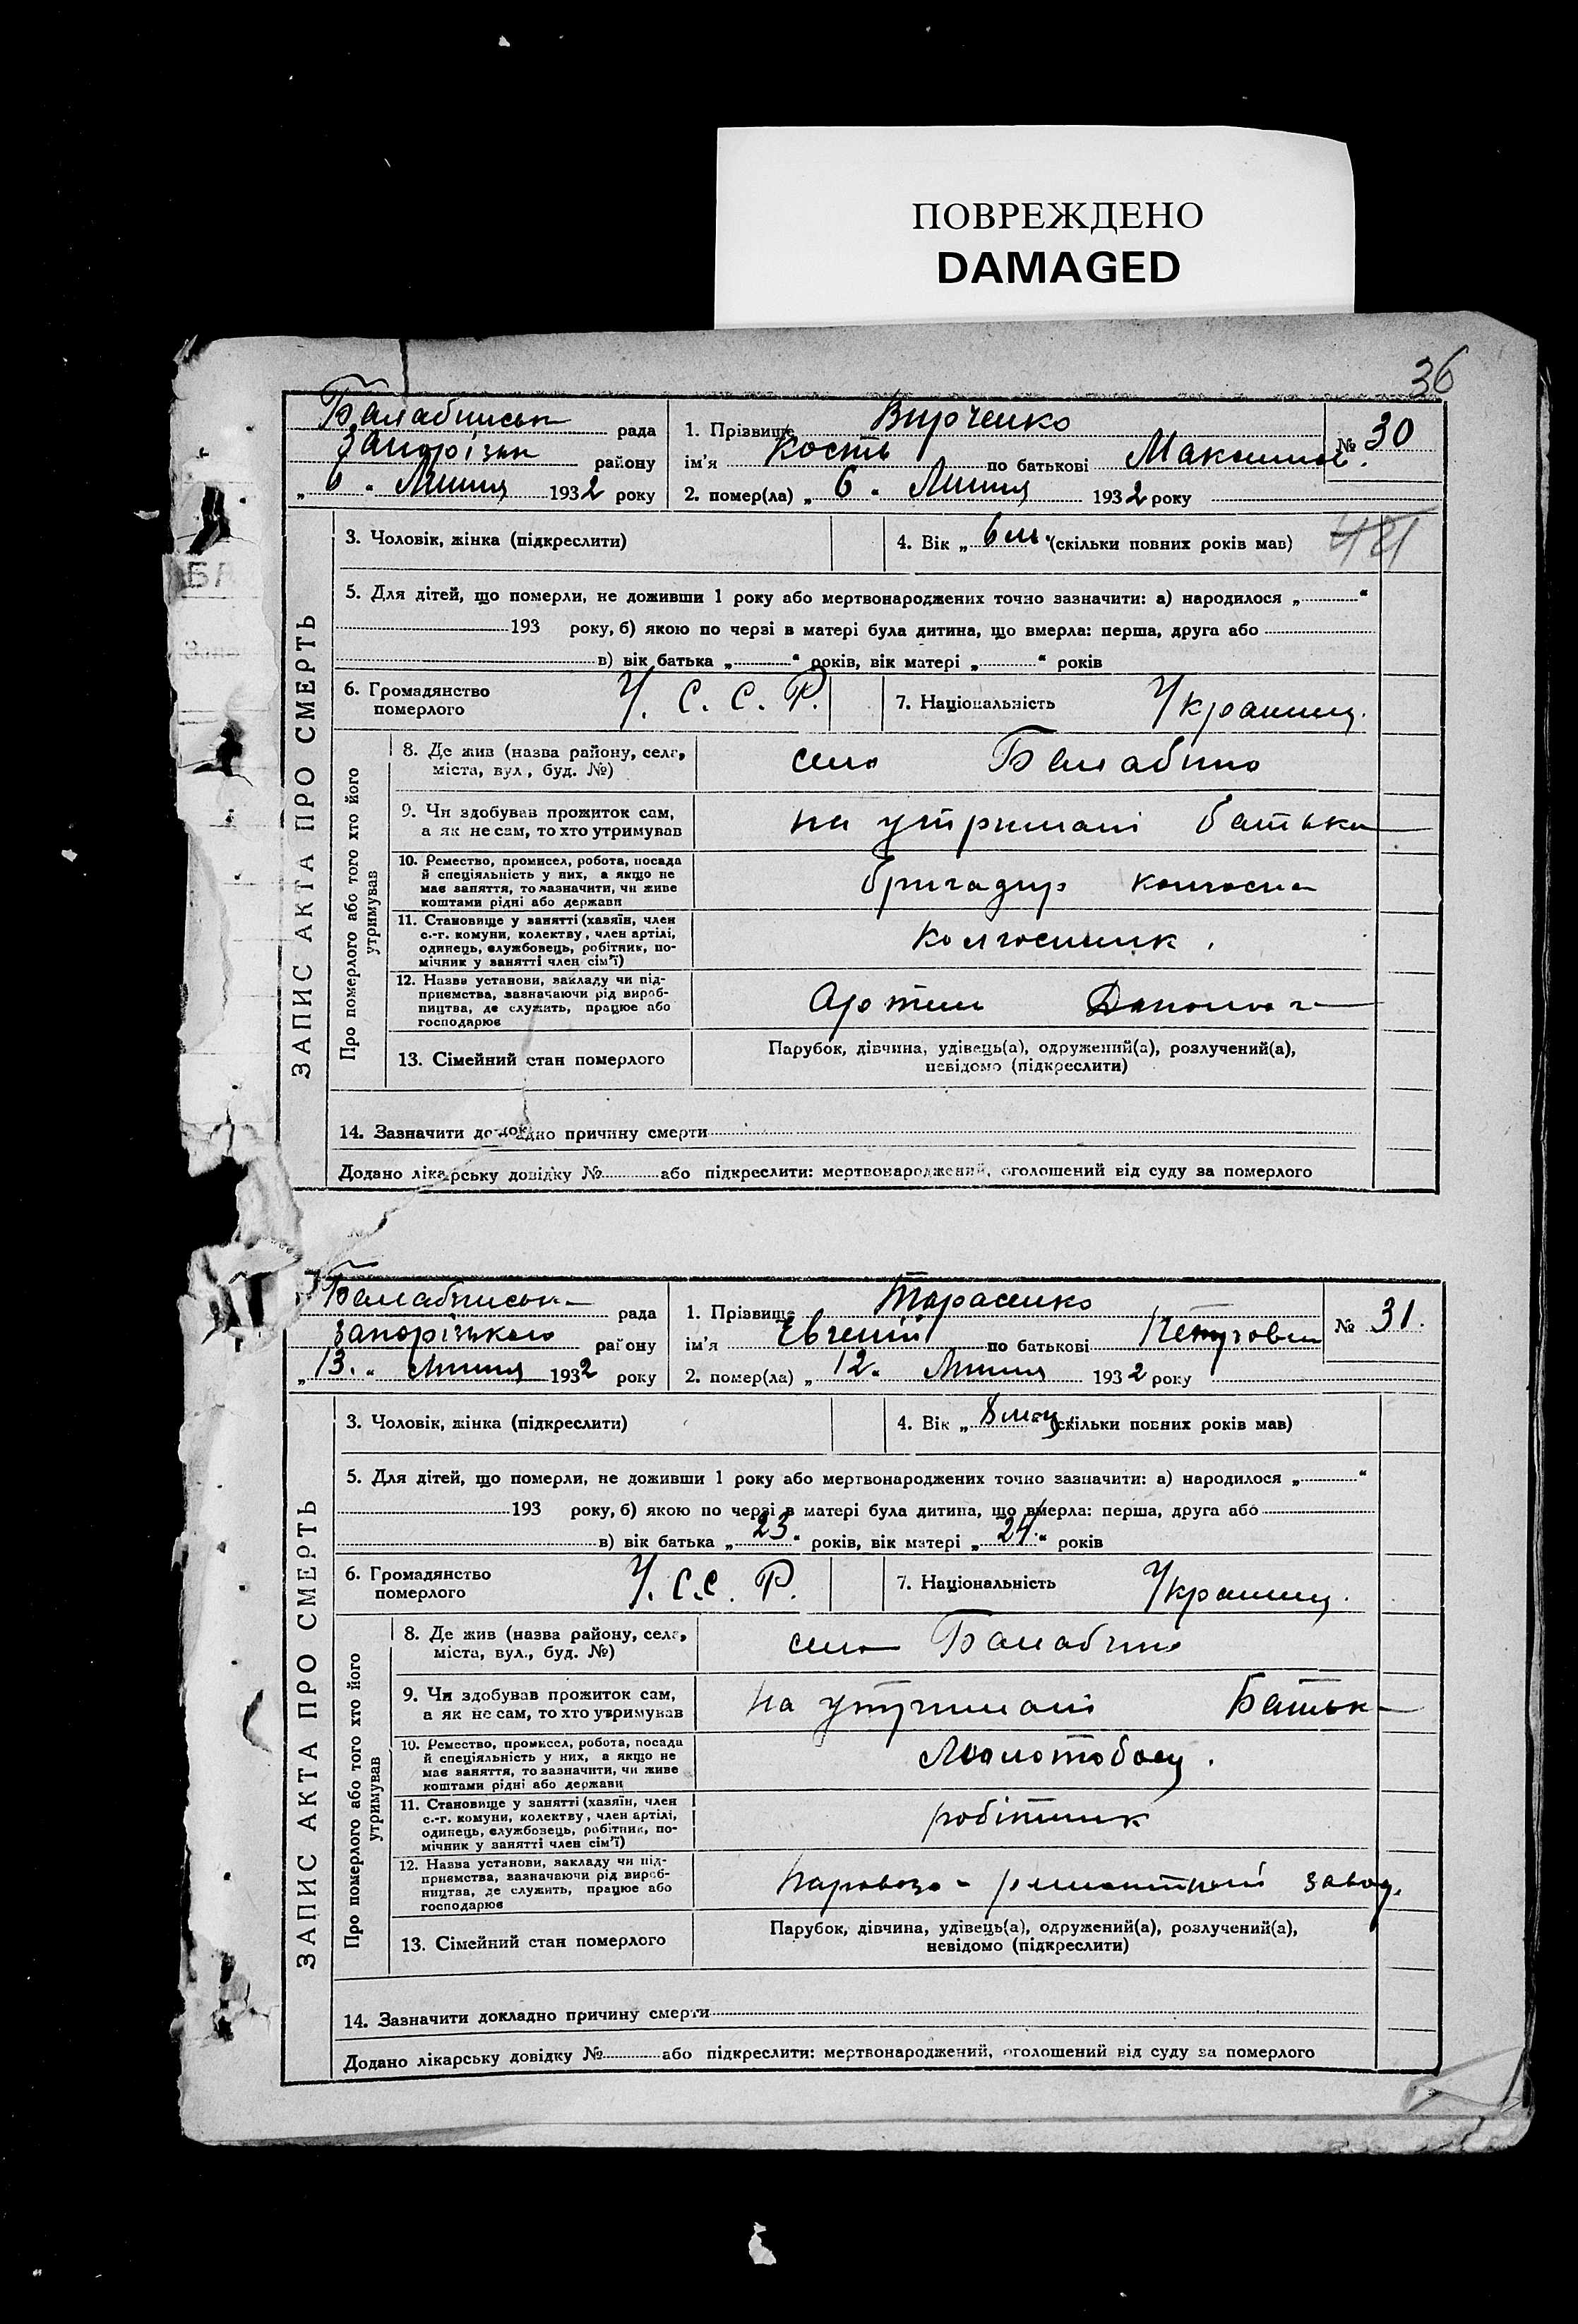 ПОВРЕЖДЕНО
DAMAGED
36
Балабинська рада
Запорізьк району
„ 6 “ Липня 1932 року
1. Прізвище Вирченко
ім'я Кость по батькові Максимов.
№ 30
2. помер(ла) „ 6 “ Липня 1932 року
ЗАПИС АКТА ПРО СМЕРТЬ
3. Чоловік, жінка (підкреслити)
4. Вік „ 6 м. “ (скільки повних років мав)
5. Для дітей, що померли, не доживши 1 року або мертвонароджених точно зазначити: а) народилося „ “
193 року, б) якою по черзі в матері була дитина, що вмерла: перша, друга або
в) вік батька „ “ років, вік матері „ “ років
6. Громадянство
померлого
У. С. С. Р.
7. Національність Украинец.
Про померлого або того хто його
утримував
8. Де жив (назва району, села,
міста, вул., буд. №)
село Балабино
9. Чи здобував прожиток сам,
а як не сам, то хто утримував
на утримані батька
10. Ремество, промисел, робота, посада
й спеціяльність у них, а якщо не
має заняття, то зазначити, чи живе
коштами рідні або держави
бригадир колгоспа
11. Становище у занятті (хазяїн, член
с.-г. комуни, колективу, член артілі,
одинець, службовець, робітник, по-
мічник у занятті член сім'ї)
колгоспник.
12. Назва установи, закладу чи під-
приємства, зазначаючи рід вироб-
ництва, де служить, працює або
господарює
Артіль
13. Сімейний стан померлого
Парубок, дівчина, удівець(а), одружений(а), розлучений(а),
невідомо (підкреслити)
14. Зазначити докладно причину смерти
Додано лікарську довідку № або підкреслити: мертвонароджений, оголошений від суду за померлого
Балабинська рада
Запорізького району
„ 13. “ Липня 1932 року
1. Прізвище Тарасенко
ім'я Євгеній по батькові Петрович
№ 31.
2. помер(ла) „ 12 “ Липня 1932 року
ЗАПИС АКТА ПРО СМЕРТЬ
3. Чоловік, жінка (підкреслити)
4. Вік „ 8 мец “ (скільки повних років мав)
5. Для дітей, що померли, не доживши 1 року або мертвонароджених точно зазначити: а) народилося „ “
193 року, б) якою по черзі в матері була дитина, що вмерла: перша, друга або
в) вік батька „ 23 “ років, вік матері „ 24 “ років
6. Громадянство
померлого
У. С. С. Р.
7. Національність Украинец.
Про померлого або того хто його
утримував
8. Де жив (назва району, села,
міста, вул., буд. №)
село Балабино
9. Чи здобував прожиток сам,
а як не сам, то хто утримував
на утримані Батька
10. Ремество, промисел, робота, посада
й спеціяльність у них, а якщо не
має заняття, то зазначити, чи живе
коштами рідні або держави
Молотобоец.
11. Становище у занятті (хазяїн, член
с.-г. комуни, колективу, член артілі,
одинець, службовець, робітник, по-
мічник у занятті член сім'ї)
робітник
12. Назва установи, закладу чи під-
приємства, зазначаючи рід вироб-
ництва, де служить, працює або
господарює
Паровозо-ремонтний завод.
13. Сімейний стан померлого
Парубок, дівчина, удівець(а), одружений(а), розлучений(а),
невідомо (підкреслити)
14. Зазначити докладно причину смерти
Додано лікарську довідку № або підкреслити: мертвонароджений, оголошений від суду за померлого